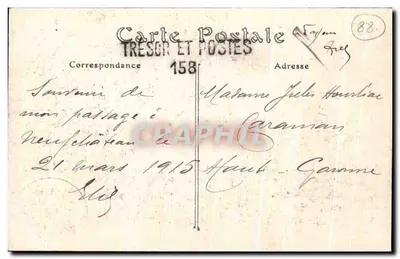 Carte Postale
88.
TRÉSOR ET POSTES
158
Correspondance
Adresse
Souvenir de
mon passage à
Neufchateau le
21 mars 1915
Madame Jules
Caraman
Haute-Garonne
CPAPHIL